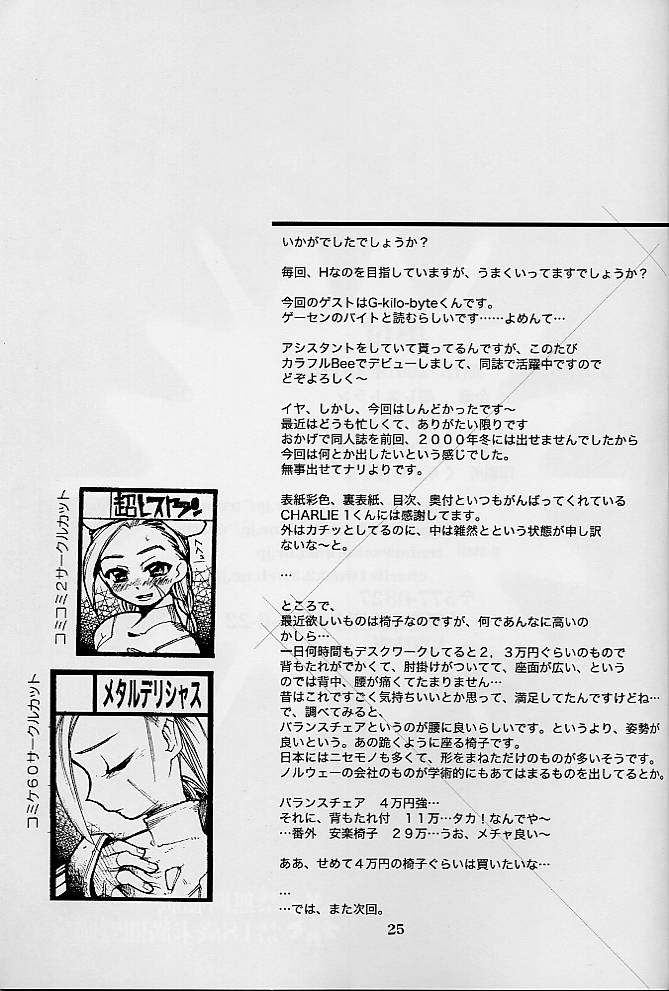 いかがでしたでしょうか？
毎回、Hなのを目指していますが、うまくいってますでしょうか？
今回のゲストはG-kilo-byteくんです。
ゲーセンのバイトと読むらしいです……よめんて…
アシスタントをしていて貰ってるんですが、このたび
カラフルBeeでデビューしまして、同誌で活躍中ですので
どぞよろしく〜
イヤ、しかし、今回はしんどかったです〜
最近はどうも忙しくて、ありがたい限りです
おかげで同人誌を前回、２０００年冬には出せませんでしたから
今回は何とか出したいという感じでした。
無事出せてナリよりです。
表紙彩色、裏表紙、目次、奥付といつもがんばってくれている
CHARLIE１くんには感謝してます。
外はカチッとしてるのに、中は雑然とという状態が申し訳
ないな〜と。
…
ところで、
最近欲しいものは椅子なのですが、何であんなに高いの
かしら…
一日何時間もデスクワークしてると２，３万円ぐらいのもので
背もたれがでかくて、肘掛けがついてて、座面が広い、という
のでは背中、腰が痛くてたまりません…
昔はこれですごく気持ちいいとか思って、満足してたんですけどね…
で、調べてみると、
バランスチェアというのが腰に良いらしいです。というより、姿勢が
良いという。あの跪くように座る椅子です。
日本にはニセモノも多くて、形をまねただけのものが多いそうです。
ノルウェーの会社のものが学術的にもあてはまるものを出してるとか。
バランスチェア　４万円強…
それに、背もたれ付　１１万…タカ！なんでや〜
…番外　安楽椅子　２９万…うお、メチャ良い〜
ああ、せめて４万円の椅子ぐらいは買いたいな…
…
…では、また次回。
25
コミコミ２サークルカット
コミケ６０サークルカット
メタルデリシャス